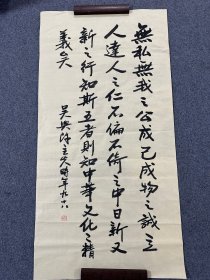 無私無我之公成己成物之誠立
人達人之仁不偏不倚之中日新又
新之行知斯五者則知中華文化之精
義矣
吳興陳立夫時年九十